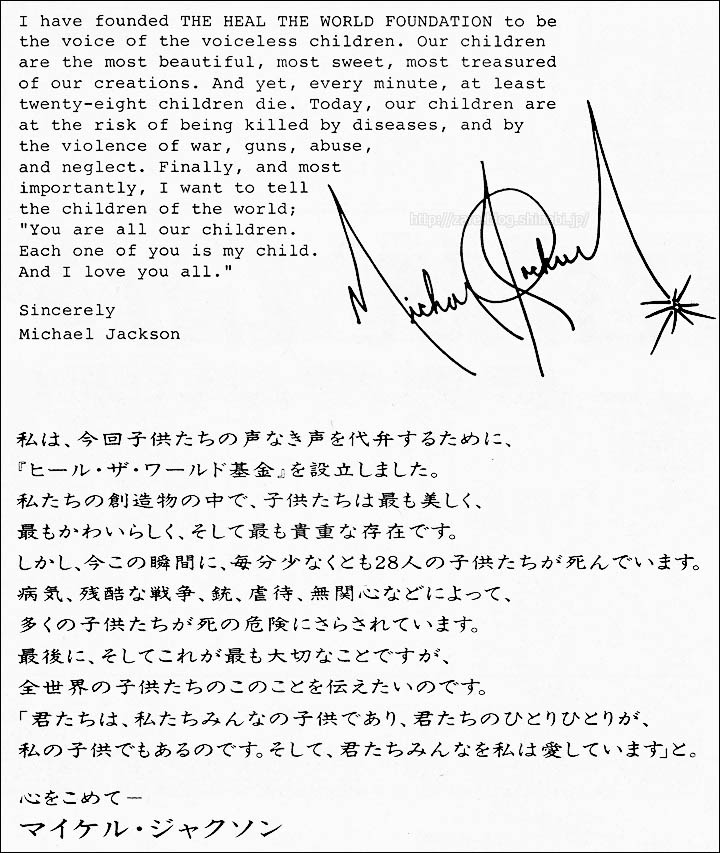 I have founded THE HEAL THE WORLD FOUNDATION to be
the voice of the voiceless children. Our children
are the most beautiful, most sweet, most treasured
of our creations. And yet, every minute, at least
twenty-eight children die. Today, our children are
at the risk of being killed by diseases, and by
the violence of war, guns, abuse,
and neglect. Finally, and most
importantly, I want to tell
the children of the world;
"You are all our children.
Each one of you is my child.
And I love you all."
Sincerely
Michael Jackson
Michael Jackson
私は、今回子供たちの声なき声を代弁するために、
『ヒール・ザ・ワールド基金』を設立しました。
私たちの創造物の中で、子供たちは最も美しく、
最もかわいらしく、そして最も貴重な存在です。
しかし、今この瞬間に、毎分少なくとも28人の子供たちが死んでいます。
病気、残酷な戦争、銃、虐待、無関心などによって、
多くの子供たちが死の危険にさらされています。
最後に、そしてこれが最も大切なことですが、
全世界の子供たちのこのことを伝えたいのです。
「君たちは、私たちみんなの子供であり、君たちのひとりひとりが、
私の子供でもあるのです。そして、君たちみんなを私は愛しています」と。
心をこめて－
マイケル・ジャクソン